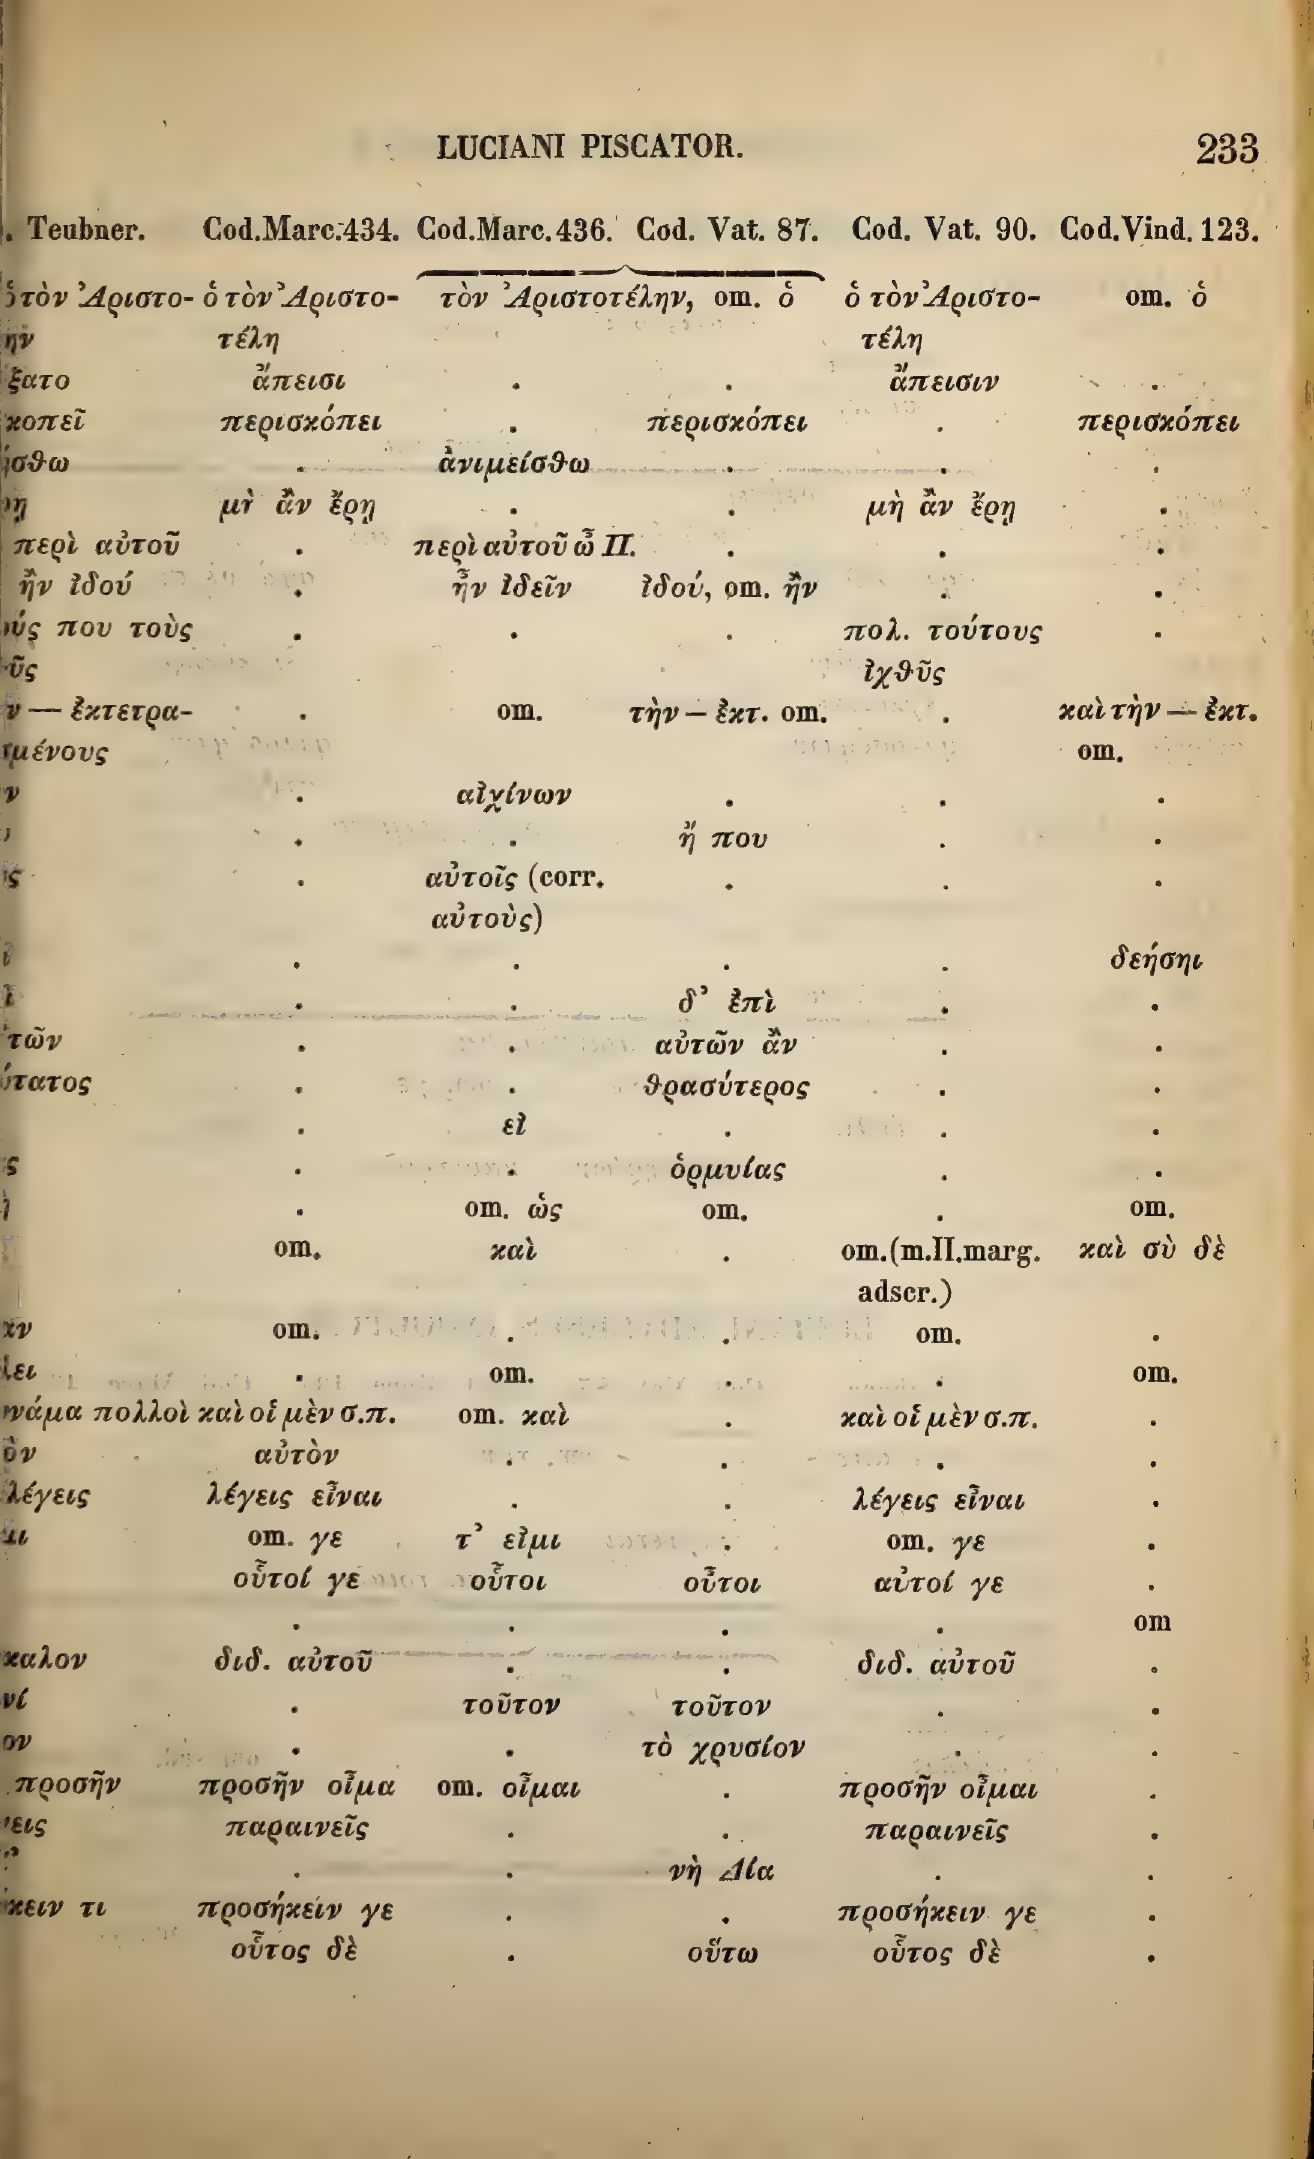 LUCIANI PISCATOR. 233
Teubner. Cod.Marc.434. Cod.Marc.436. Cod. Vat. 87. Cod. Vat. 90. Cod.Vind.123.
ὁ τὸν Ἀριστο- ὁ τὸν Ἀριστο- τὸν Ἀριστοτέλην, om. ὁ ὁ τὸν Ἀριστο- om. ὁ
ην τέλη τέλη
ξατο ἄπεισι . . ἄπεισιν .
κοπεῖ περισκόπει . περισκόπει . περισκόπει
σθω . ἀνιμείσθω . . .
ῃ μὴ ἂν ἔρῃ . . μὴ ἂν ἔρῃ .
περὶ αὐτοῦ . περὶ αὐτοῦ ὦ Π. . . .
ἢν ἰδού . ἦν ἰδεῖν ἰδού, om. ἢν . .
ύς που τοὺς . . . πολ. τούτους .
ῦς ἰχθῦς
ν — ἐκτετρα- . om. τὴν – ἐκτ. om. . καὶ τὴν — ἐκτ.
μένους om.
ν . αἰχίνων . . .
. . ἤ που . .
ς . αὐτοῖς (corr. . . .
αὐτοὺς)
. . . . δεήσηι
. . δ’ ἐπὶ . .
τῶν . . αὐτῶν ἂν . .
ύτατος . . θρασύτερος . .
. εἰ . . .
ς . . ὁρμυίας . .
. om. ὡς om. . om.
om. καὶ . om.(m.II.marg. καὶ σὺ δὲ
adscr.)
κν om. . . om. .
λει . om. . . om.
νάμα πολλοὶ καὶ οἱ μὲν σ.π. om. καὶ . καὶ οἱ μὲν σ.π. .
ὸν αὐτὸν . . . .
λέγεις λέγεις εἶναι . . λέγεις εἶναι .
αι om. γε τ’ εἰμι . om. γε .
οὗτοί γε οὗτοι οὗτοι αὐτοί γε .
. . . . om
καλον διδ. αὐτοῦ . . διδ. αὐτοῦ .
νί . τοῦτον τοῦτον . .
ον . . τὸ χρυσίον . .
προσῆν προσῆν οἶμα om. οἶμαι . προσῆν οἶμαι .
εις παραινεῖς . . παραινεῖς .
. . νὴ Δία . .
κειν τι προσήκειν γε . . προσήκειν γε .
οὗτος δὲ . οὕτω οὗτος δὲ .